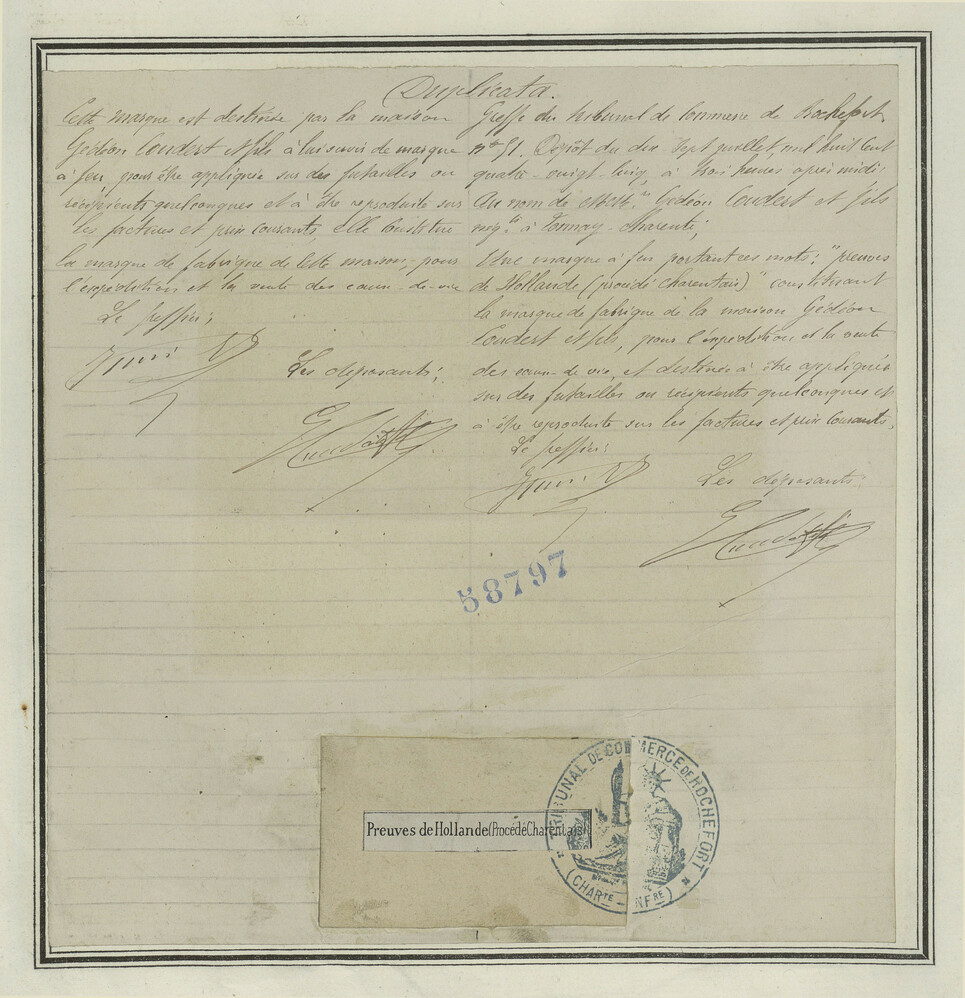 Duplicata.
Cette marque est destinée par la maison
Gédéon Coudert et fils à lui servir de marque
à feu, pour être appliquée sur des futailles ou
récipients quelconques et à être reproduite sur
les factures et prix courants, elle constitue
la marque de fabrique de cette maison, pour
l'expédition et la vente des eaux-de-vie
Le greffier;
Les déposants;
Greffe du tribunal de Commerce de Rochefort
n° 51. Dépôt du dix-sept juillet, mil huit cent
quatre-vingt-cinq, à trois heures après midi.
Au nom de MM. Gédéon Coudert et fils
nég.ts à Tonnay-Charente;
Une marque à feu portant ces mots: "preuves
de Hollande (procédé charentais)" constituant
la marque de fabrique de la maison Gédéon
Coudert et fils, pour l'expédition et la vente
des eaux-de-vie, et destinée à être appliquée
sur des futailles ou récipients quelconques et
à être reproduite sur les factures et prix courants.
Le greffier;
Les déposants.
58797
Preuves de Hollande (Procédé Charentais)
TRIBUNAL DE COMMERCE DE ROCHEFORT
(CHARTE - INFRE)